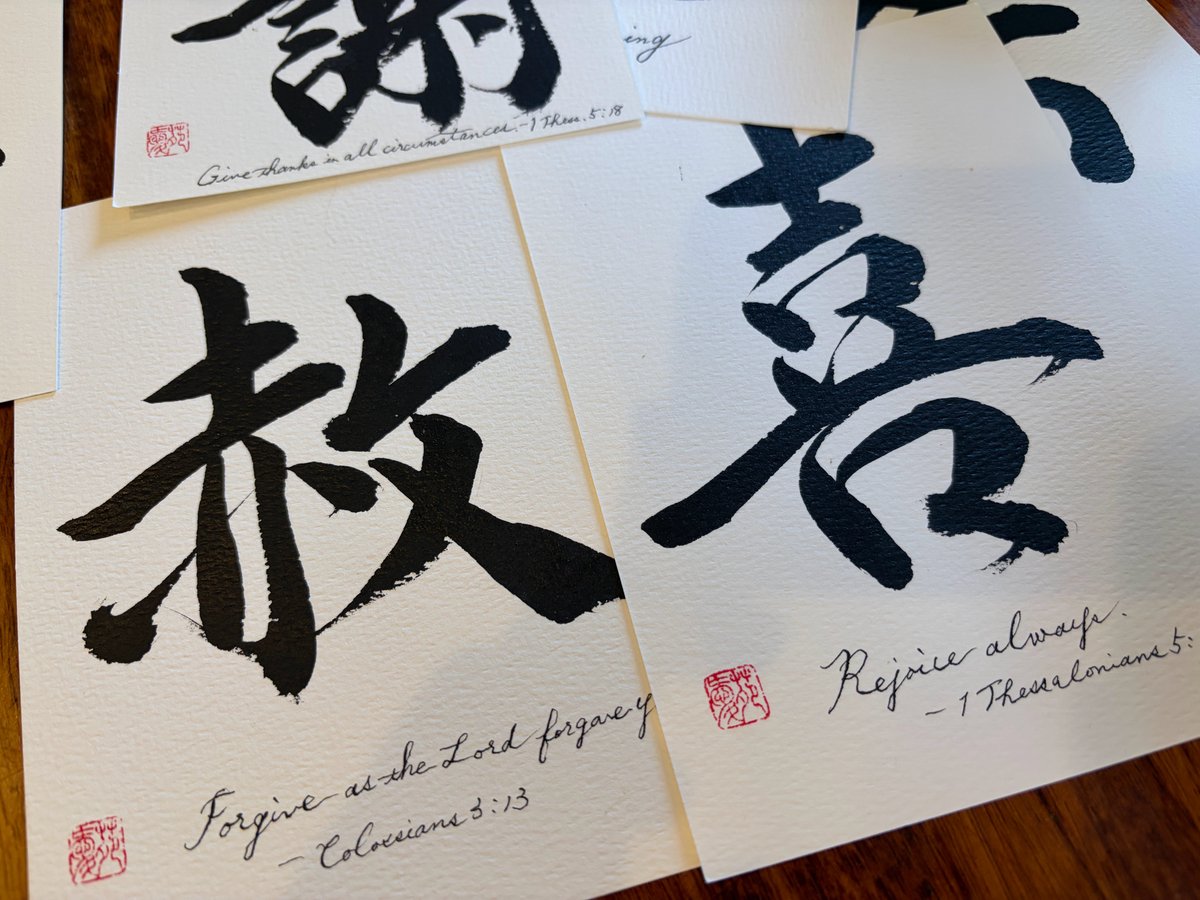 謝
Give thanks in all circumstances. - 1 Thess. 5:18
赦
Forgive as the Lord forgave y
- Colossians 3:13
喜
Rejoice always.
- 1 Thessalonians 5:
ing